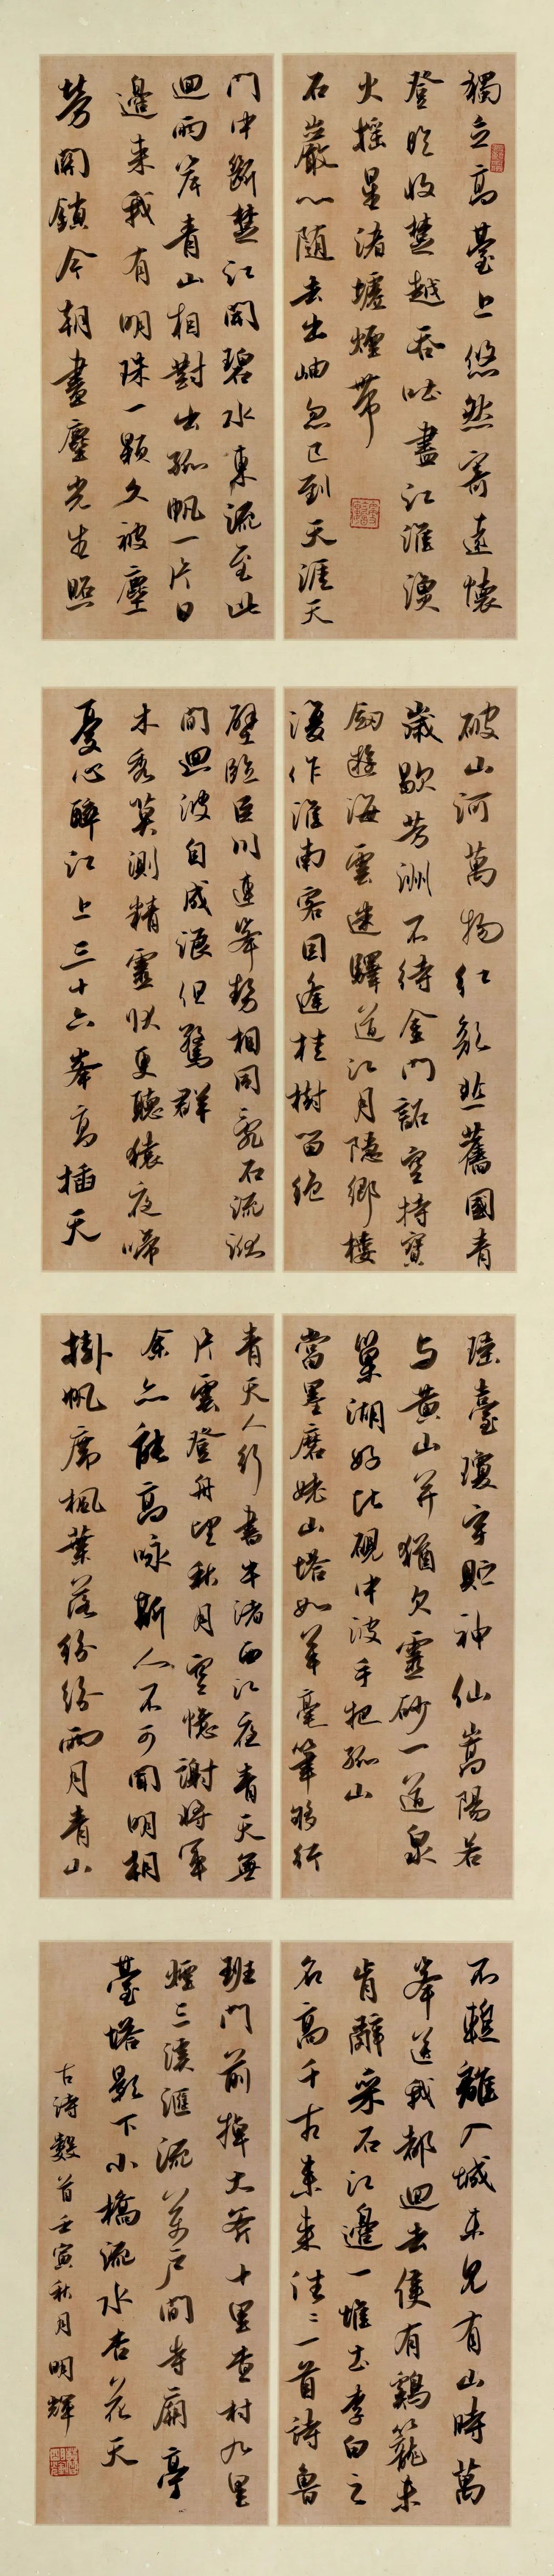 獨立高臺上悠然寄遠懷
登臨收楚越吞吐盡江淮漠
火搖星渚墟煙帶
石巖心隨去出岫忽已到天涯天
門中斷楚江開碧水東流至此
迴兩岸青山相對出孤帆一片日
邊來我有明珠一顆久被塵
勞關鎖今朝盡塵光生照
破山河萬物紅顏悲舊國青
歲歇芳洲不待金門詔空持寶
劍遊海雲迷驛道江月隱鄉樓
復作淮南客因逢桂樹留絕
壁臨巨川連峯勢相向亂石流洑
間迴波自成浪但驚群
木秀莫測精靈狀更聽猿夜啼
憂心醉江上三十六峯高插天
瑤臺瓊宇貯神仙嵩陽若
与黃山并猶欠靈砂一道泉
巢湖好比硯中波手把孤山
當墨磨姥山塔如羊毫筆夠行
青天人行書牛渚西江夜青天無
片雲登舟望秋月空憶謝將軍
余亦能高咏斯人不可聞明朝
掛帆席楓葉落紛紛兩月青山
不輕離入城未見有山時萬
峯送我都迴去僅有鷄籠未
肯辭采石江邊一堆土李白之
名高千古來來往往一首詩魯
班門前掉大斧十里查村九里
煙三溪滙流萬户間寺廟亭
臺塔影下小橋流水杏花天
古詩數首壬寅秋月明輝